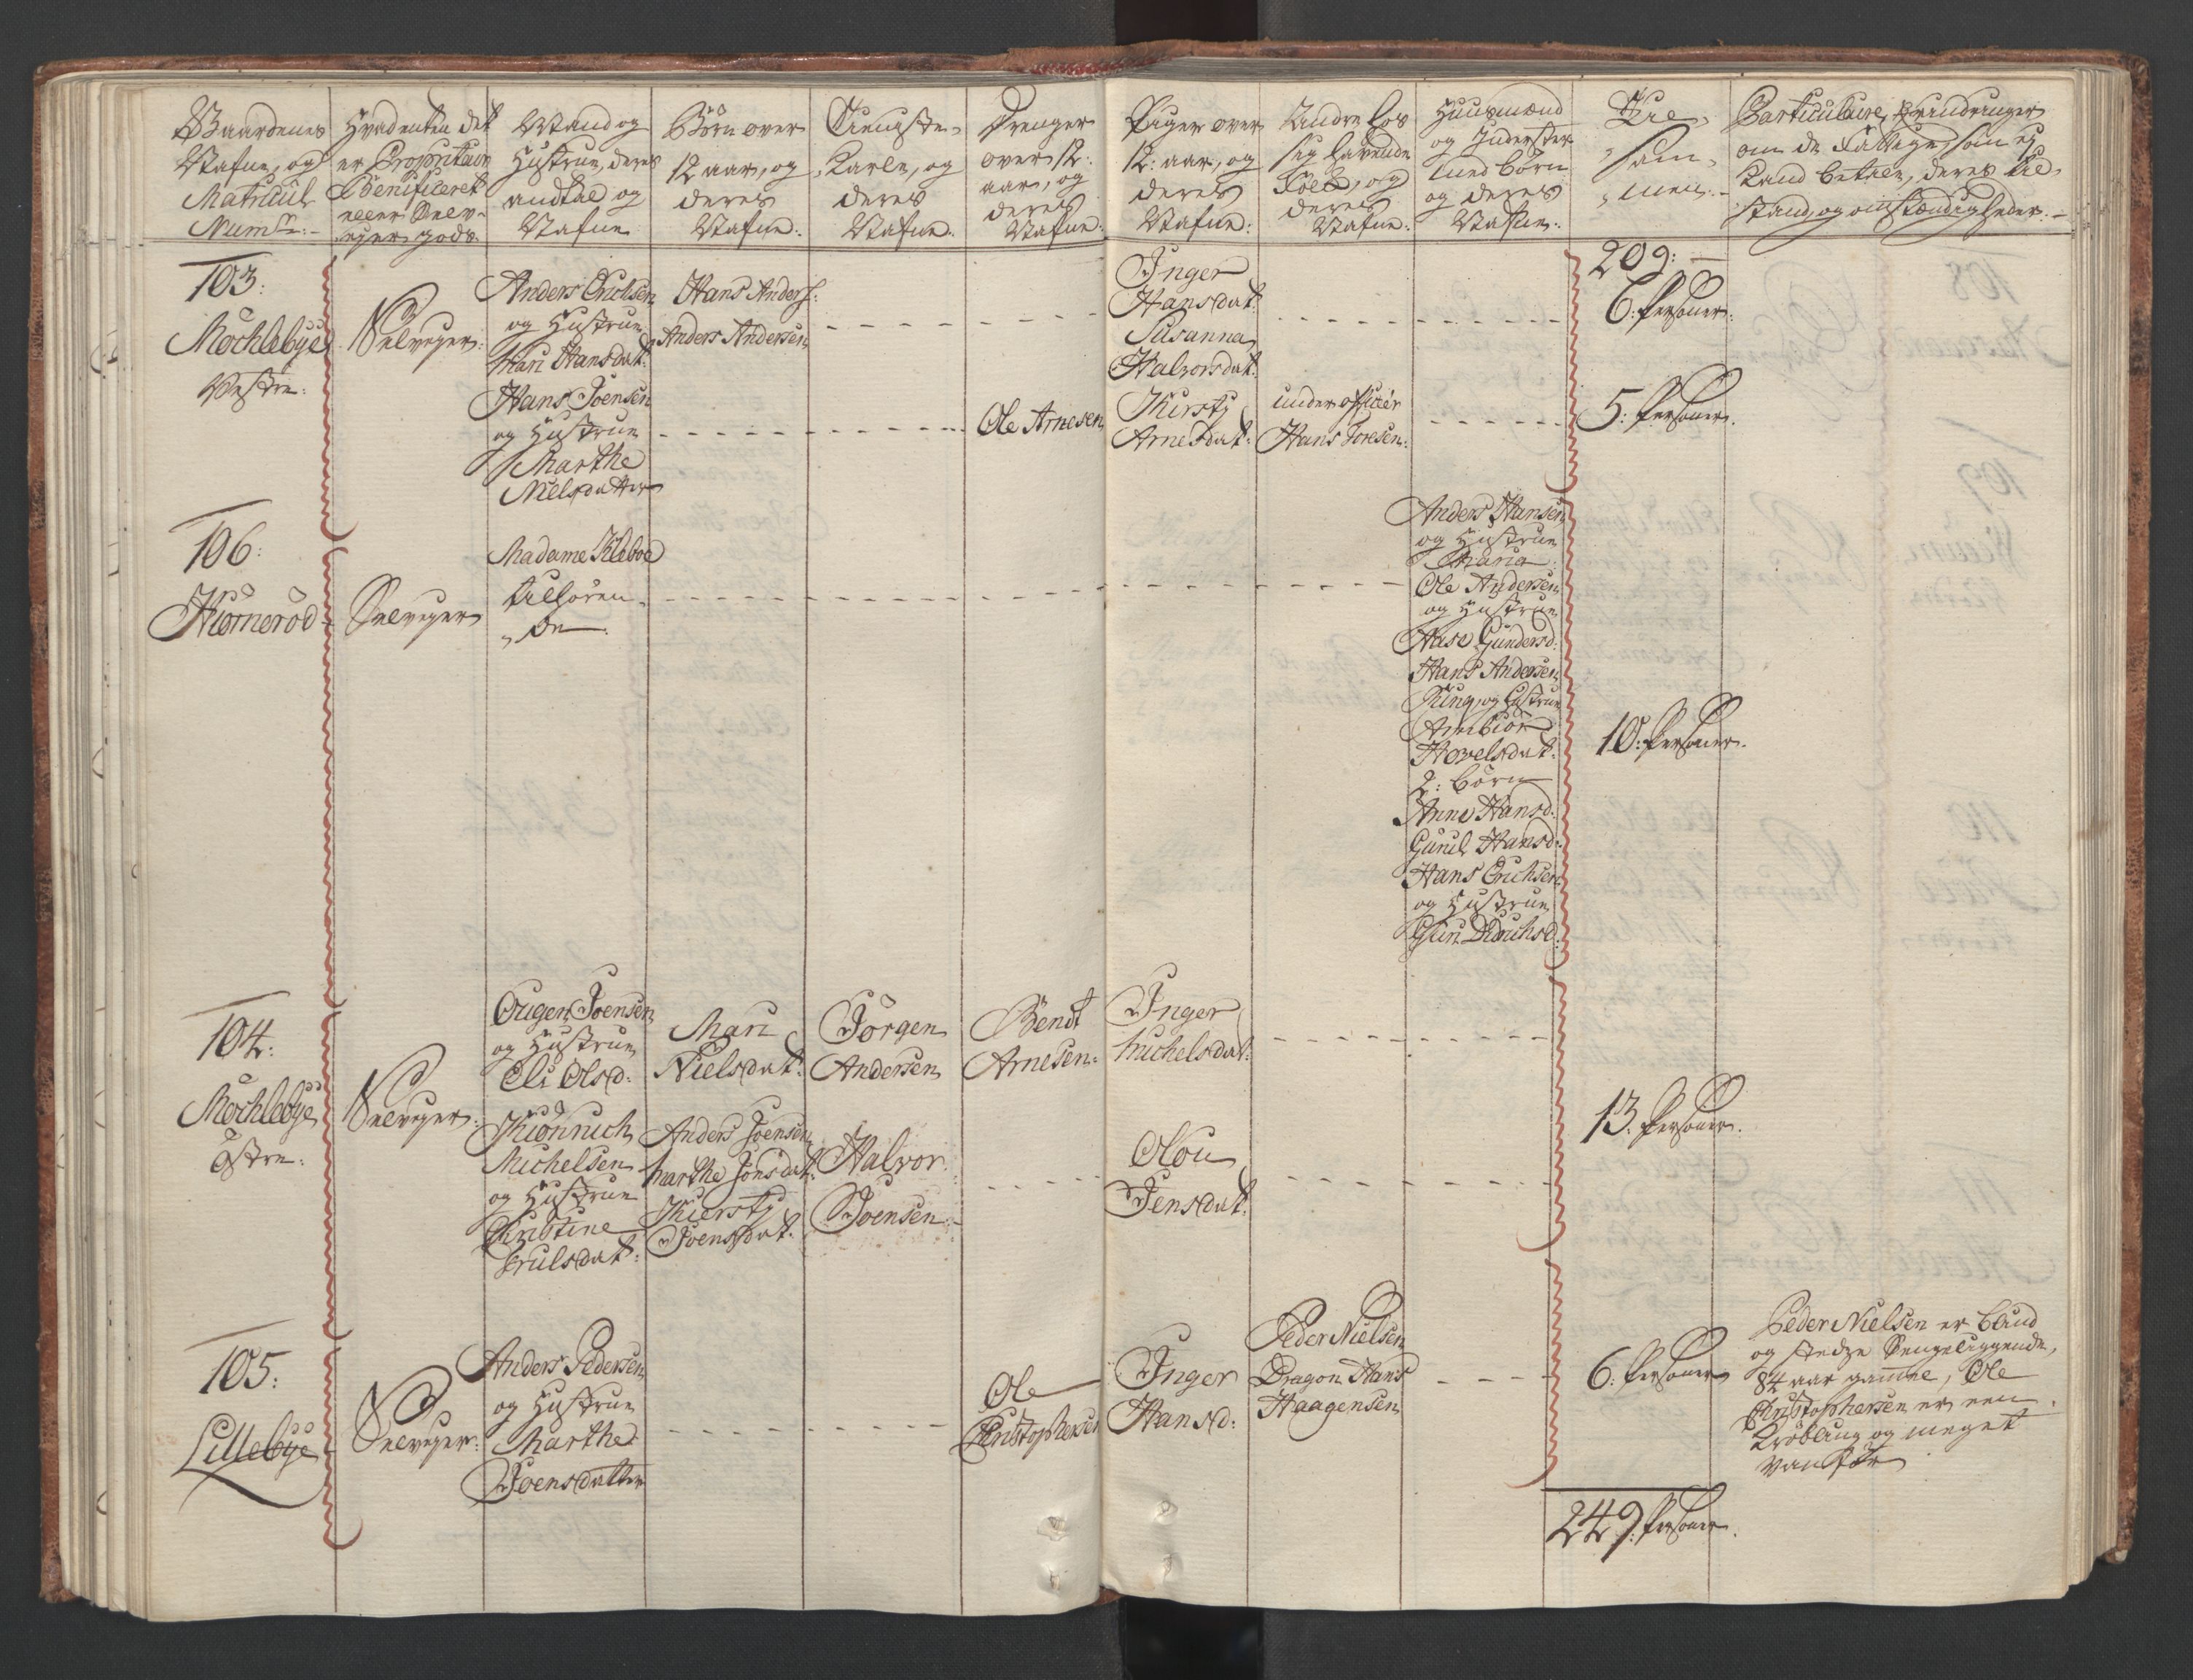 Gaardenes
Nafne, og
Matricul
Num:
Hvad enten det
er Proprietair
Beneficeret
eller Selv-
ejer gods.
Mand og
Hustrue, deres
andtal og
Nafne
Børn over
12 aar, og
deres
Nafne:
Tieniste-
Karle, og
deres
Nafne.
Drenger
over 12:
aar, og
deres
Nafne:
Piger over
12: aar, og
deres
Nafne:
Andre løs
sig havende
Folk, og
deres
Nafne:
Huusmænd
og Inderster
med Børn
og deres
Nafne:
Til-
sam-
men:
Particulaire Erindringer
om de Fattige, som ej
kand betale, deres til-
stand, og omstændigheder.
209:
103:
Mochlebye
Vestre:
Selveyer:
Anders Erichsen
og Hustrue
Mari Hansdat:
Hans Anders:
Anders Andersen
Inger
Hansdat:
Susanna
Halvorsdat:
6: Personer:
Hans Joensen
og Hustrue
Marthe
Nielsdatter
Ole Arnesen
Kirsty
Arnesdat:
under officer
Hans Joresen:
5: Personer.
106:
Kiørnerød
Selveyer
Madame Kleboe
tilhøren-
de
Anders Hansen
og Hustrue
Maria
Ole Andersen
og Hustrue
Aase Gundersd:
Hans Andersen
Ring, og Hustrue
Arnbiør
Hovelsdat:
2: børn
Anne Hansd:
Guruh Hansd:
Hans Erichsen
og Hustrue
Guri Didrichsd:
10: Personer.
104:
Mochlebye
Østre:
Selveyer:
Ougen Joensen
og Hustrue
Eli Olsd:
Mari
Nielsdat:
Jørgen
Andersen
Bendt
Arnesen:
Inger
Michelsdat:
13: Personer.
Michelsen
og Hustrue
Christine
Trulsdat:
Anders Joensen
Marthe Jonsdat:
Kiersty
Joensdat:
Halvor
Joensen:
Olou
Jensdat:
105:
Lillebye
Selveyer:
Anders Pedersen
og Hustrue
Marthe
Joensdatter
Ole
Christophersen
Inger
Hansd:
Peder Nielsen
Dragon Hans
Haagensen
6: Personer
Peder Nielsen er blind
og stedze Sengeliggende,
84 aar gamle, Ole
Christophersen er een
Krøbling og meget
vanfør
249: Personer.